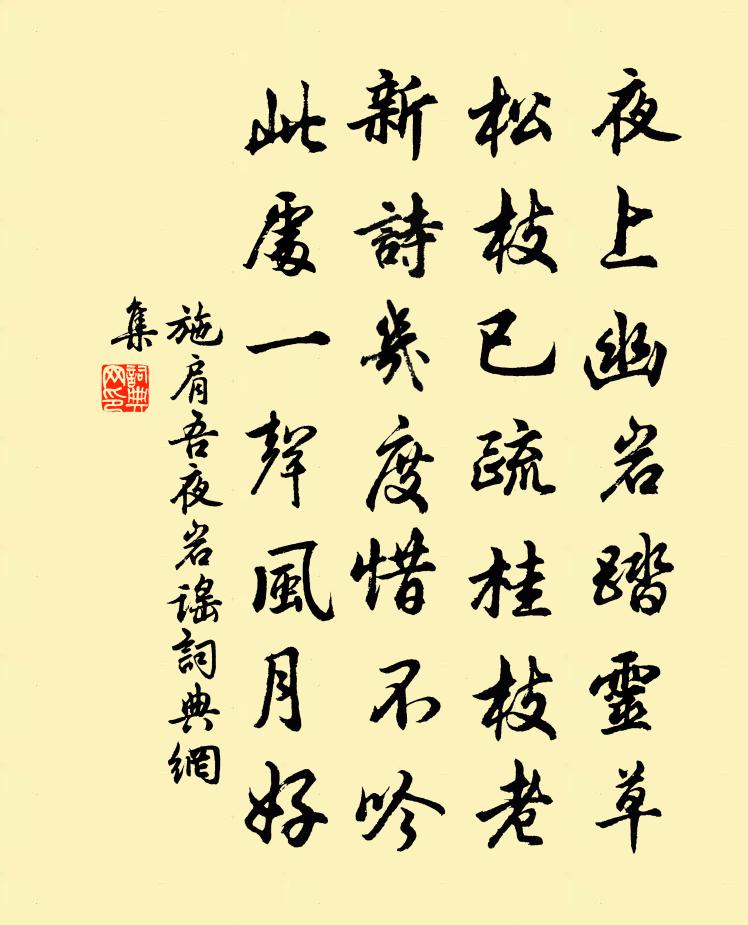 夜上幽岩踏靈草
松枝已疏桂枝老
新詩幾度惜不吟
此處一聲風月好
施肩吾夜岩謠詞典網
集
詞典网印